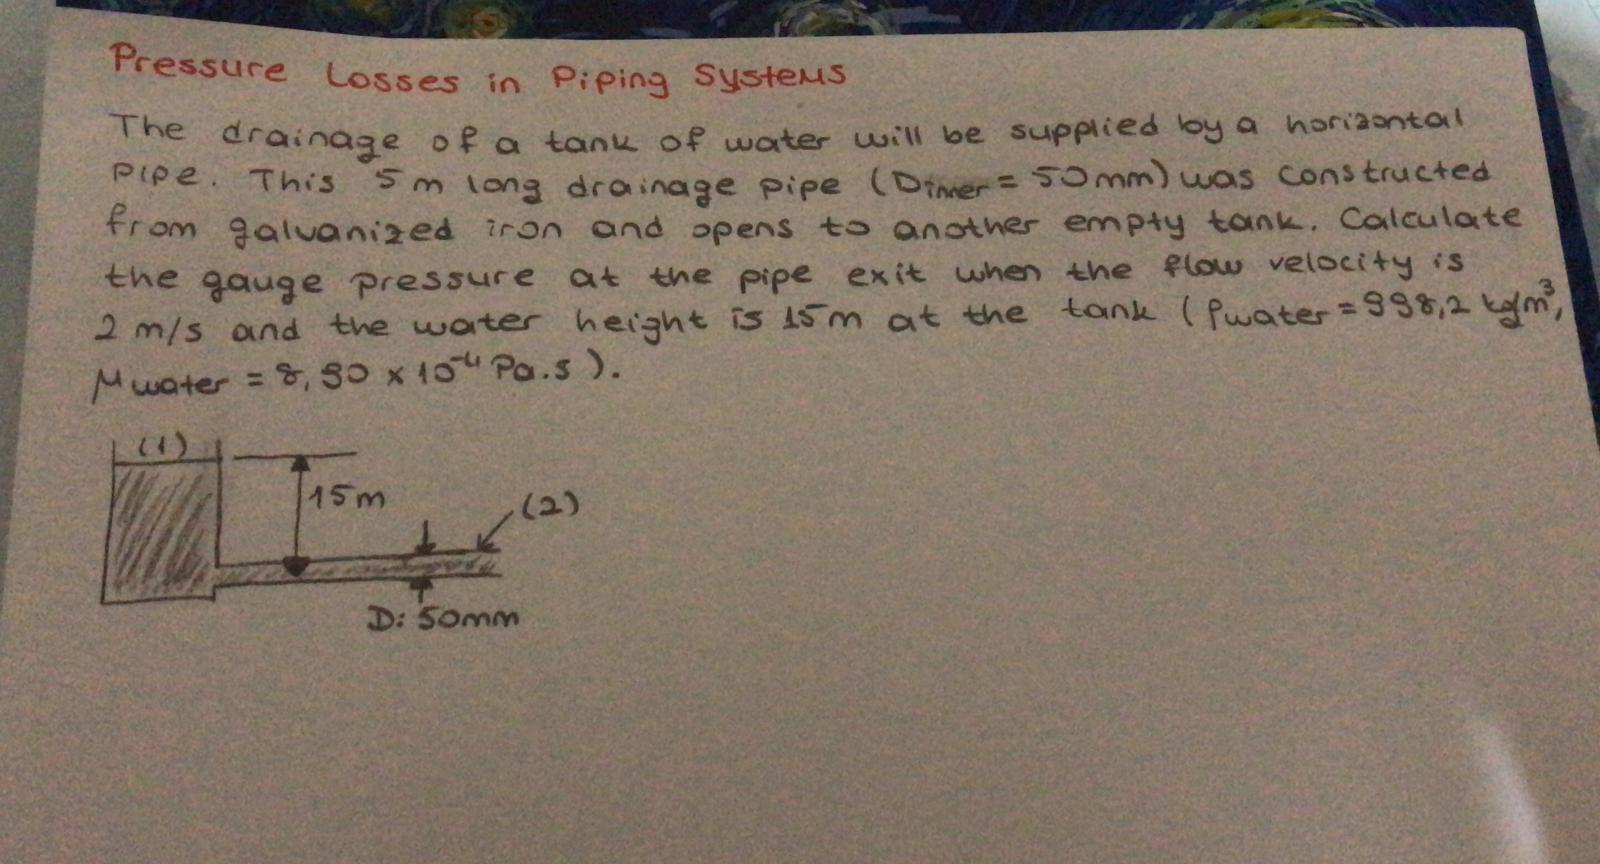 Pressure Losses in Piping Systems
The drainage of a tank of water will be supplied by a horizontal
pipe. This 5m long drainage pipe (Dinner = 50mm) was constructed
from galvanized iron and opens to another empty tank. Calculate
the gauge pressure at the pipe exit when the flow velocity is
2 m/s and the water height is 15m at the tank (ρwater = 998,2 kg/m³,
μwater = 8,90 x 10⁻⁴ Pa.s).
(1)
15m
(2)
D: 50mm